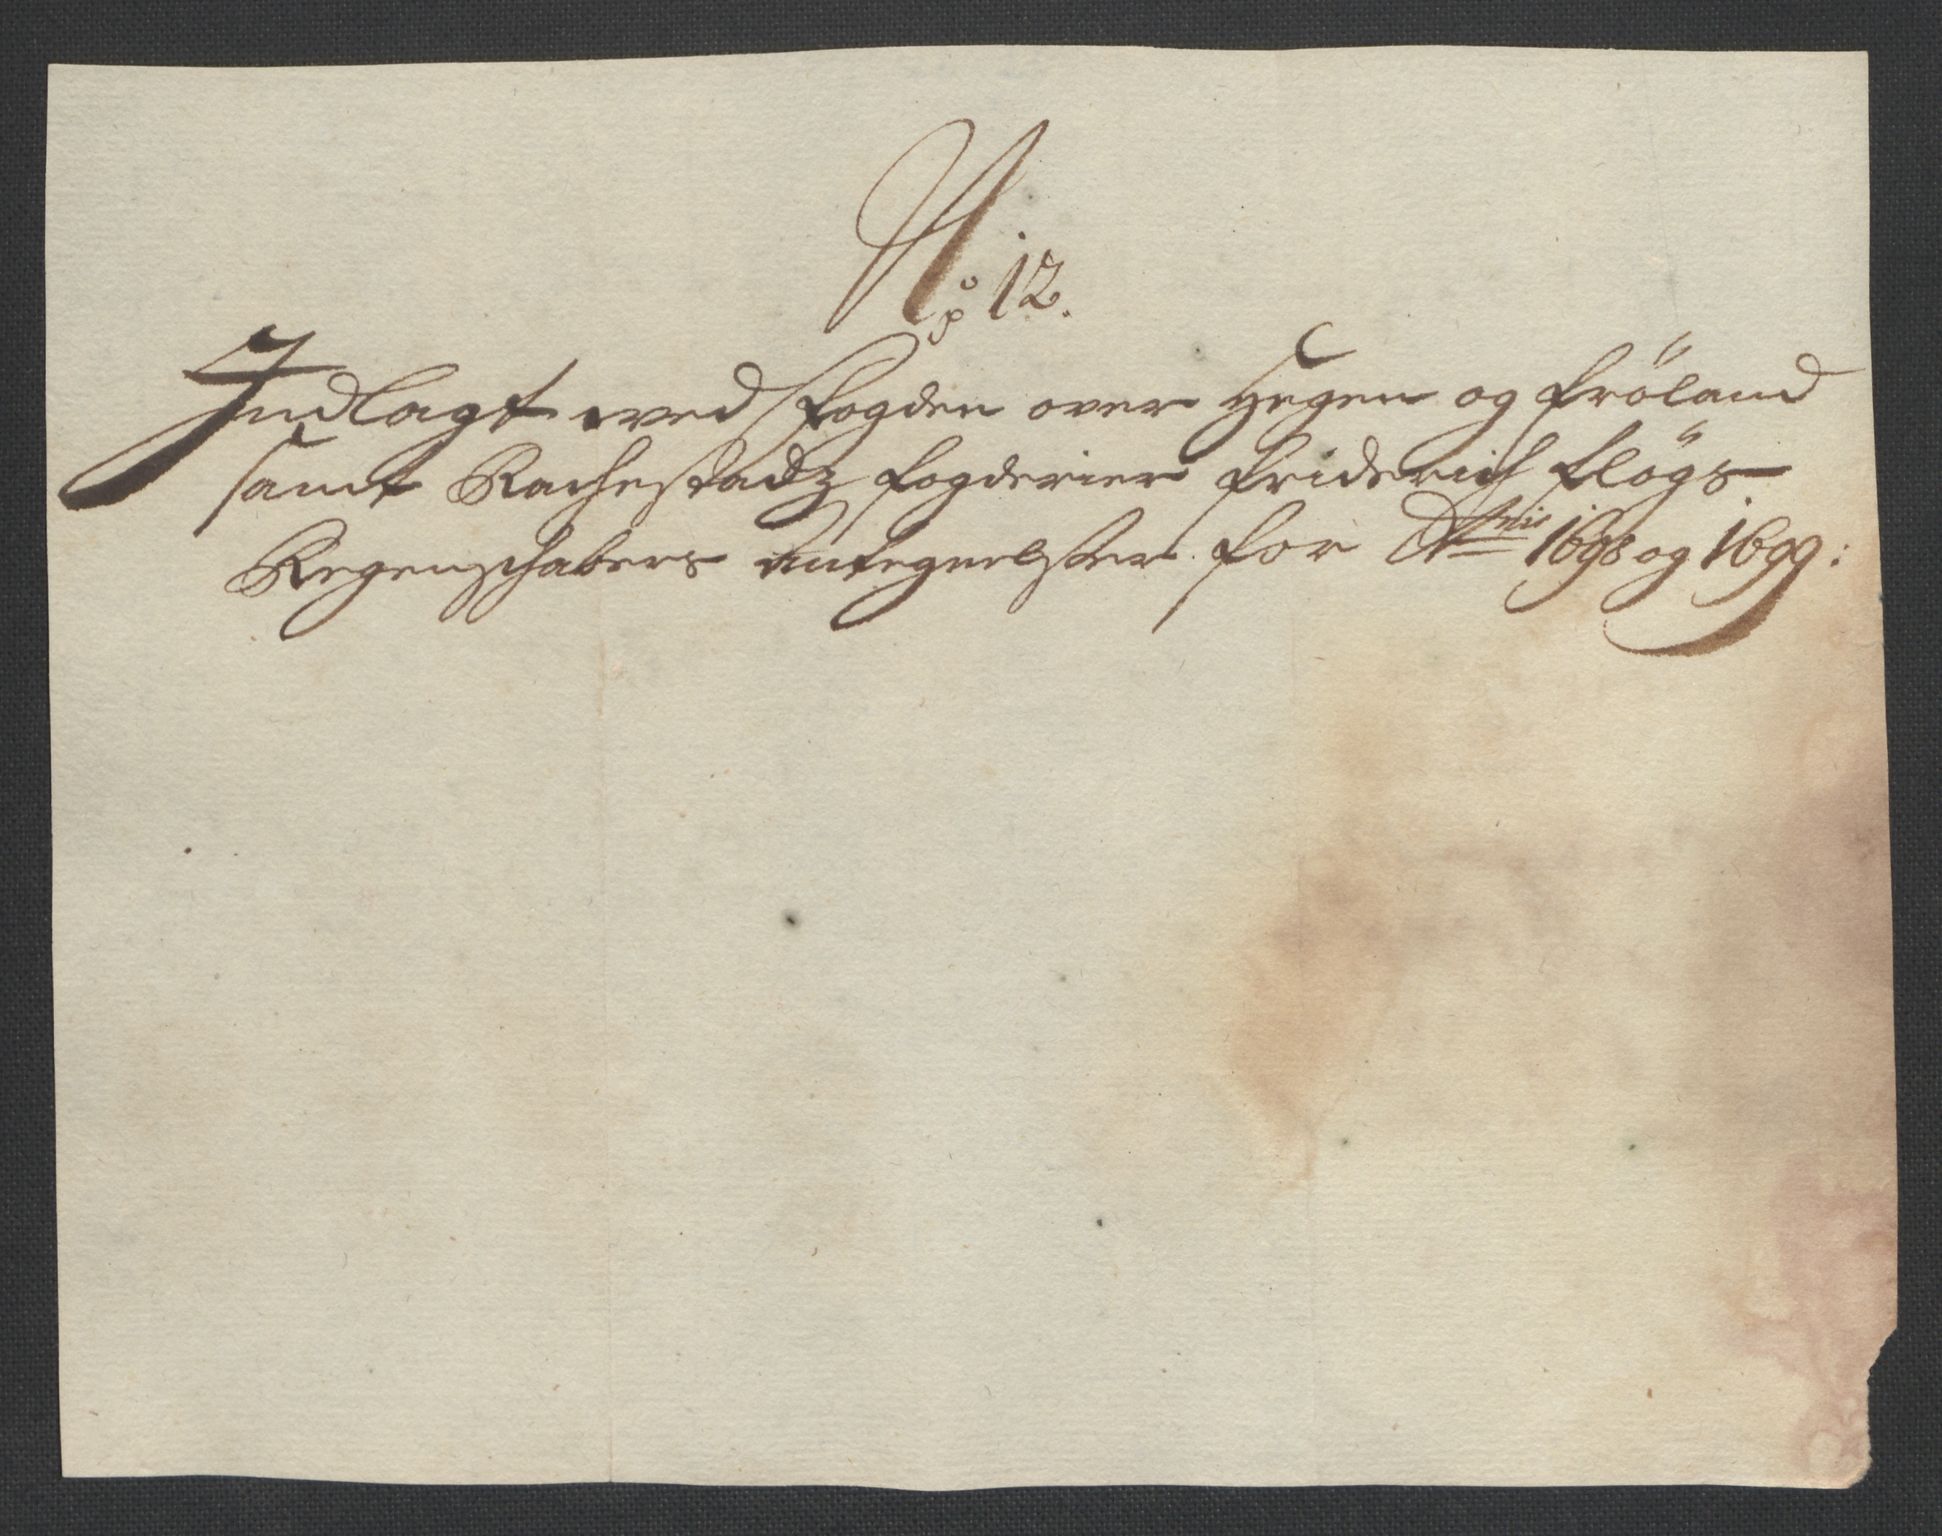 No 12.
Indlagt ved Fogden over Heggen og Fröland
samt Rachestadz fogderier Friderich Flögs
Regenschabers Antegnelser for A:nis 1698 og 1699: